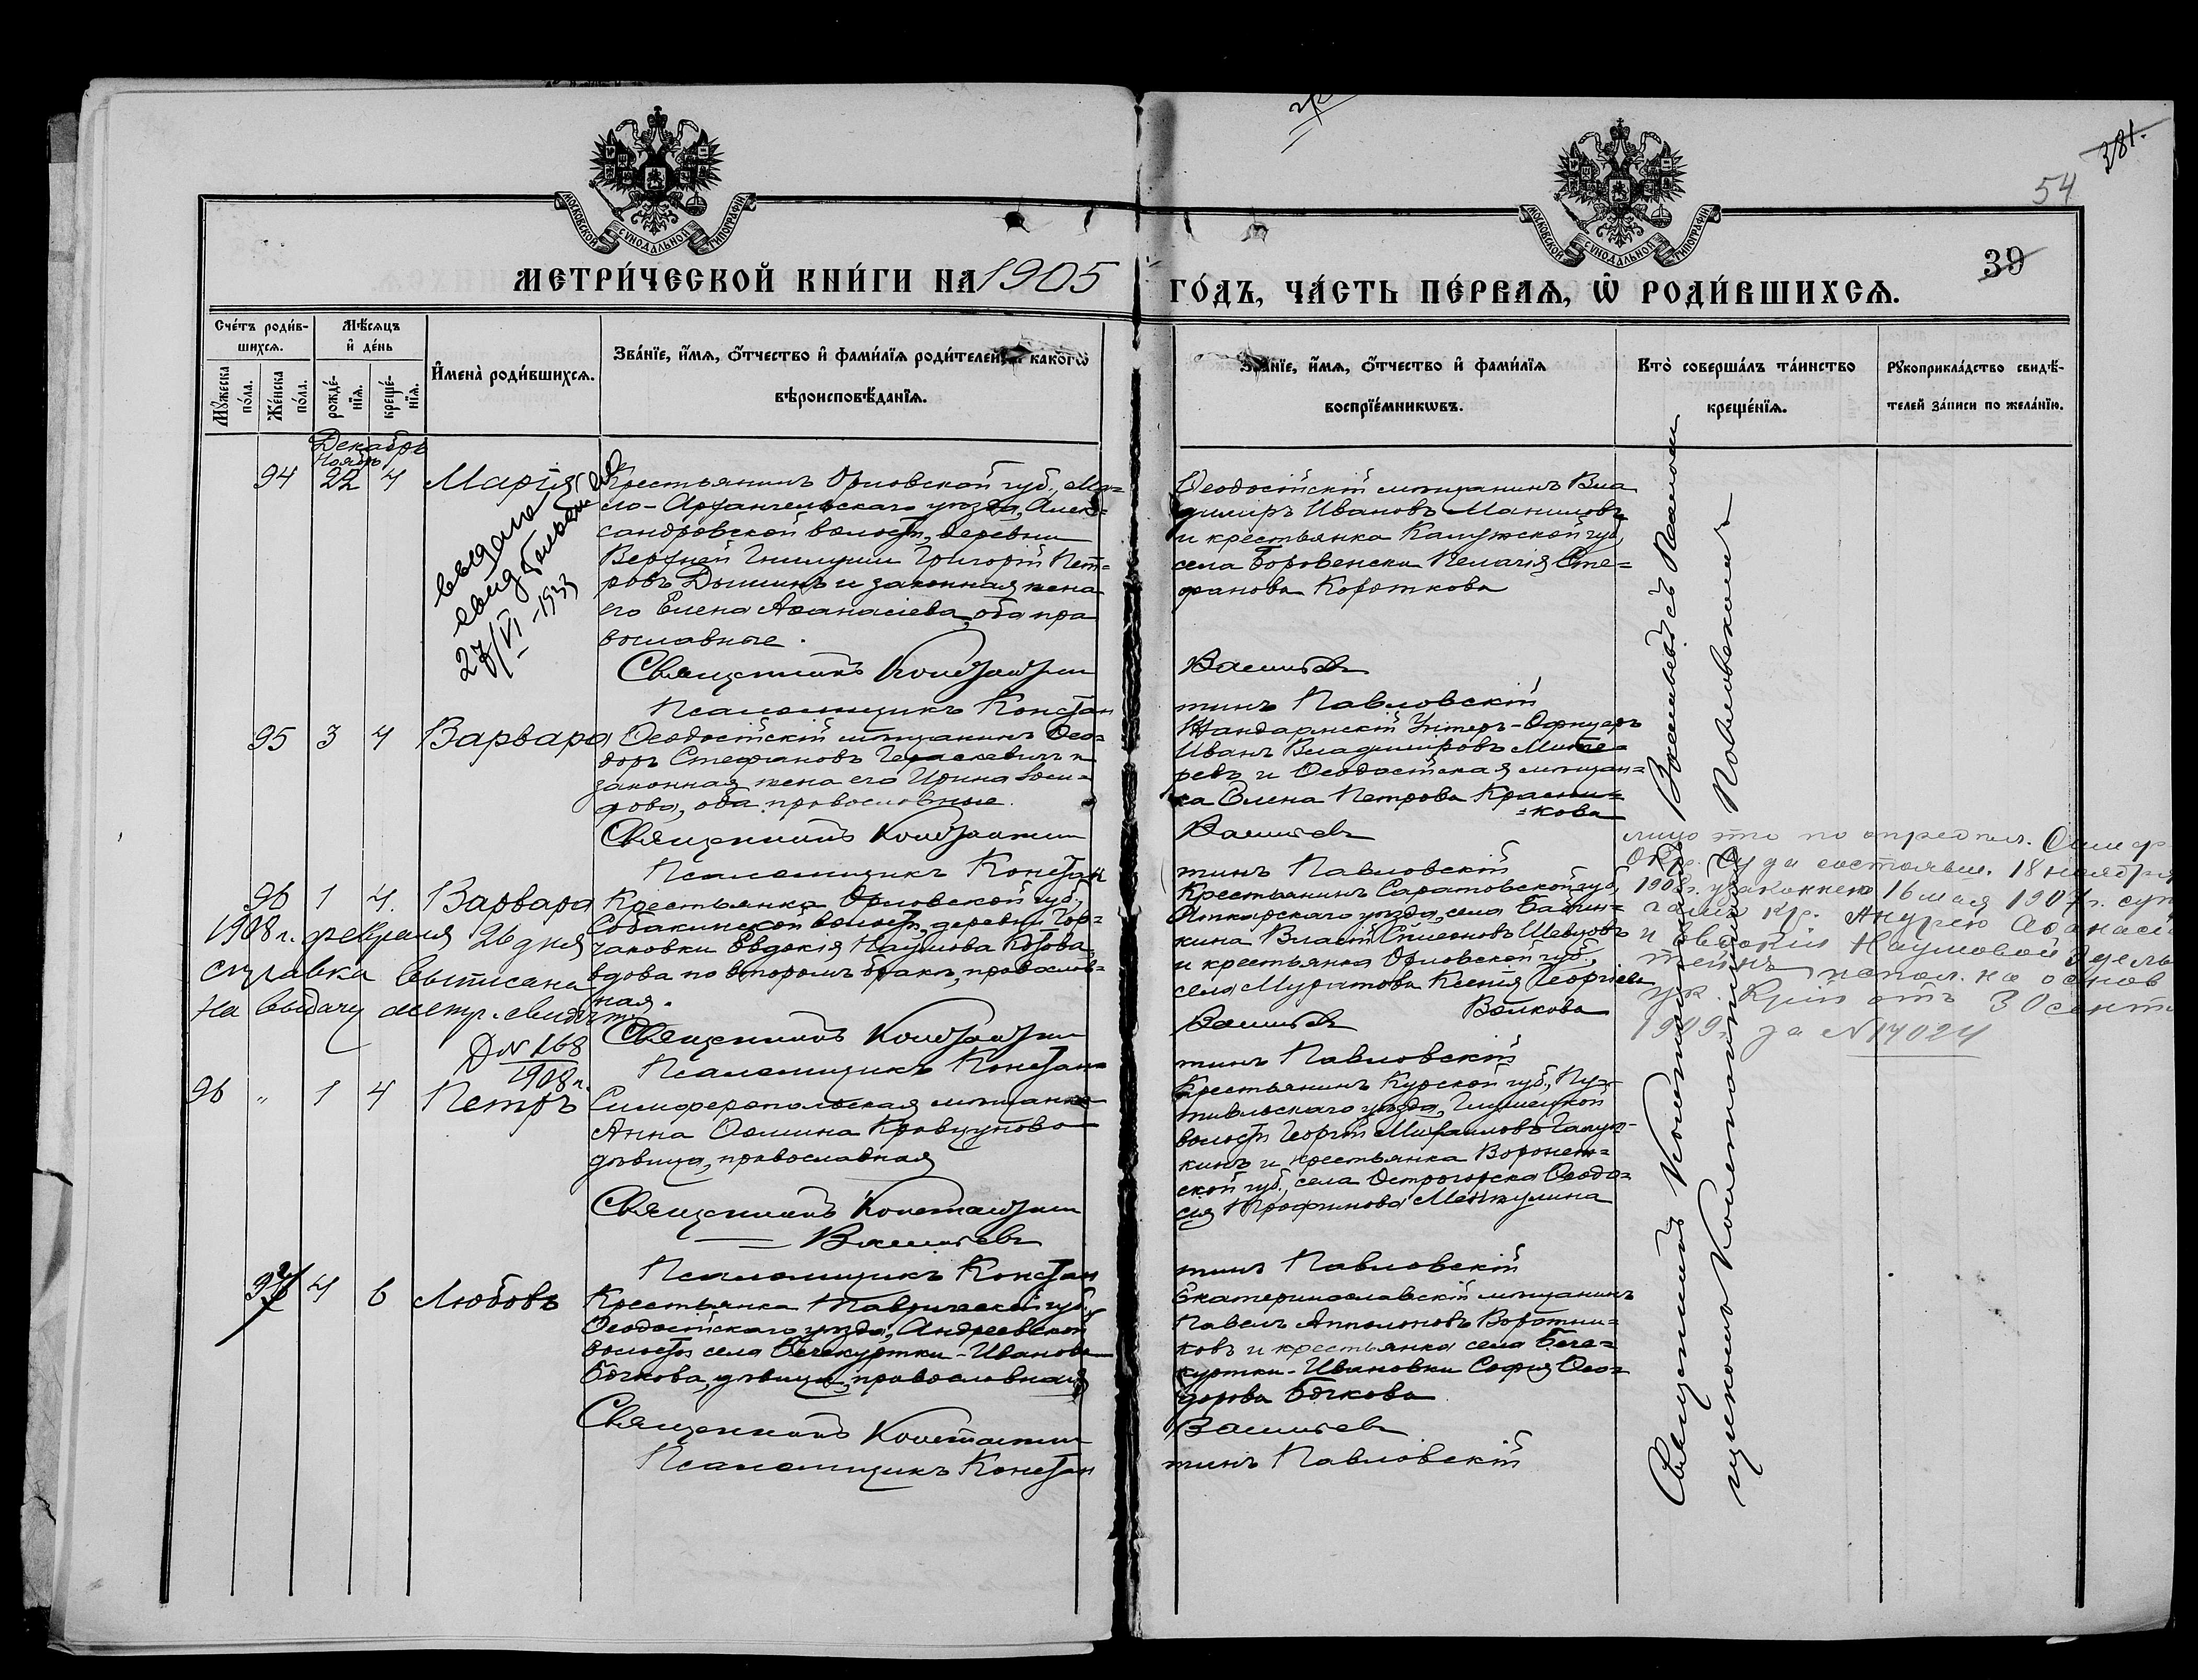 381.
54
39
МОСКОВСКОЙ СѴНОДАЛЬНОЙ ТИПОГРАФІИ
МОСКОВСКОЙ СѴНОДАЛЬНОЙ ТИПОГРАФІИ
МЕТРИ́ЧЕСКОЙ КНИ́ГИ НА 1905
ГО́ДЪ, ЧА́СТЬ ПЕ́РВАѦ, Ѡ҆ РОДИ́ВШИХСѦ.
Сче́тъ роди́в-
шихсѧ.
Мꙋ́жеска по́ла.
Же́нска по́ла.
Мѣ́сѧцъ
и҆ де́нь
рожде́-
нїѧ.
креще́-
нїѧ.
И҆мена̀ роди́вшихсѧ.
Зва́нїе, и҆́мѧ, ѻ҆́тчество и҆ фами́лїѧ роди́телей, како́гѡ
вѣроисповѣ́данїѧ.
Зва́нїе, и҆́мѧ, ѻ҆́тчество и҆ фами́лїѧ
воспрїе́мникѡвъ.
Кто̀ соверша́лъ та́инство
креще́нїѧ.
Рꙋкоприкла́дство свидѣ́-
телей за́писи по жела́нїю.
Декабрь
Ноябрь
94 22 4 Марія
выдано
свид
27/VI-1933
Крестьянинъ Орловской губ., Ма-
ло-Архангельскаго уѣзда, Алек-
сандровской волости, деревни
Верхней Гнилуши Григорій Пет-
ровъ Дышинъ и законная жена
его Елена Аѳанасіева, оба пра
вославные.
Священникъ Константин
Псаломщикъ Констан
Ѳеодосійскій мѣщанинъ Вла
диміръ Ивановъ Манишовъ
и крестьянка Калужской губ,
села Боровенска Пелагія Сте-
фанова Короткова
Васильевъ
тинъ Павловскій
95 3 4 Варвара
Ѳеодосійскій мѣщанинъ Ѳео-
доръ Стефановъ Гераскевичъ и
законная жена его Ирина
оба православные.
Священникъ Константин
Псаломщикъ Констан
Жандармскій Унтеръ-Офицеръ
Иванъ Владиміровъ
ревъ и Ѳеодосійская мѣщан-
ка Елена Петрова Красни-
=кова
Васильевъ
тинъ Павловскій
96 1 4. Варвара
1908 г. февраля 26 дня
справка выписана
на выдачу метр. свидѣт.
Д № 168
1908 г.
Крестьянка Орловской губ,
Собакинской волости, деревни Гор-
чаковки Евдокія Наумова Котова,
вдова по второмъ бракѣ, православ-
ная.
Священникъ Константин
Псаломщикъ Констан-
Крестьянинъ Саратовской губ,
Аткарскаго уѣзда, села
кина Власій Симеоновъ Шевцовъ
и крестьянка Орловской губ.,
села Муратова Ксенія Георгіева
Волкова
Васильевъ
тинъ Павловскій
лицо это по опредѣл. Симф
Окр. Суда состоявш. 18 ноября
1908 г. узаконено 16 мая 1907 г. суп
гами кр. Андрею Аѳанасі
и Евдокіи Наумовой
1909 г. за № 17024
96 " 1 4 Петръ
Симферопольская мѣщанка
Анна Ѳомина Кравцунова
дѣвица, православная
Священникъ Константин
Васильевъ
Псаломщикъ Констан
Крестьянинъ Курской губ., Пу-
тивльскаго уѣзда, Глушецкой
волости Георгій Михаиловъ Галуш-
кинъ и крестьянка Воронеж-
ской губ, села Острогорска Ѳеодо-
сія Трофимова Ментулина
тинъ Павловскій
97 4 6 Любовь
Крестьянка Таврической губ,
Ѳеодосійскаго уѣзда, Андреевской
волости села Бечекуртки-Ивановка
Бочкова, дѣвица, православная
Священникъ Константин
Псаломщикъ Констан
Екатеринославскій мѣщанинъ
Павелъ Апполоновъ Воротни-
ковъ и крестьянка села Бече-
куртки-Ивановки Софія Ѳео-
дорова Бочкова
Васильевъ
тинъ Павловскій
Священникъ Константинъ Васильевъ съ Псалом
щикомъ Константиномъ Павловскимъ